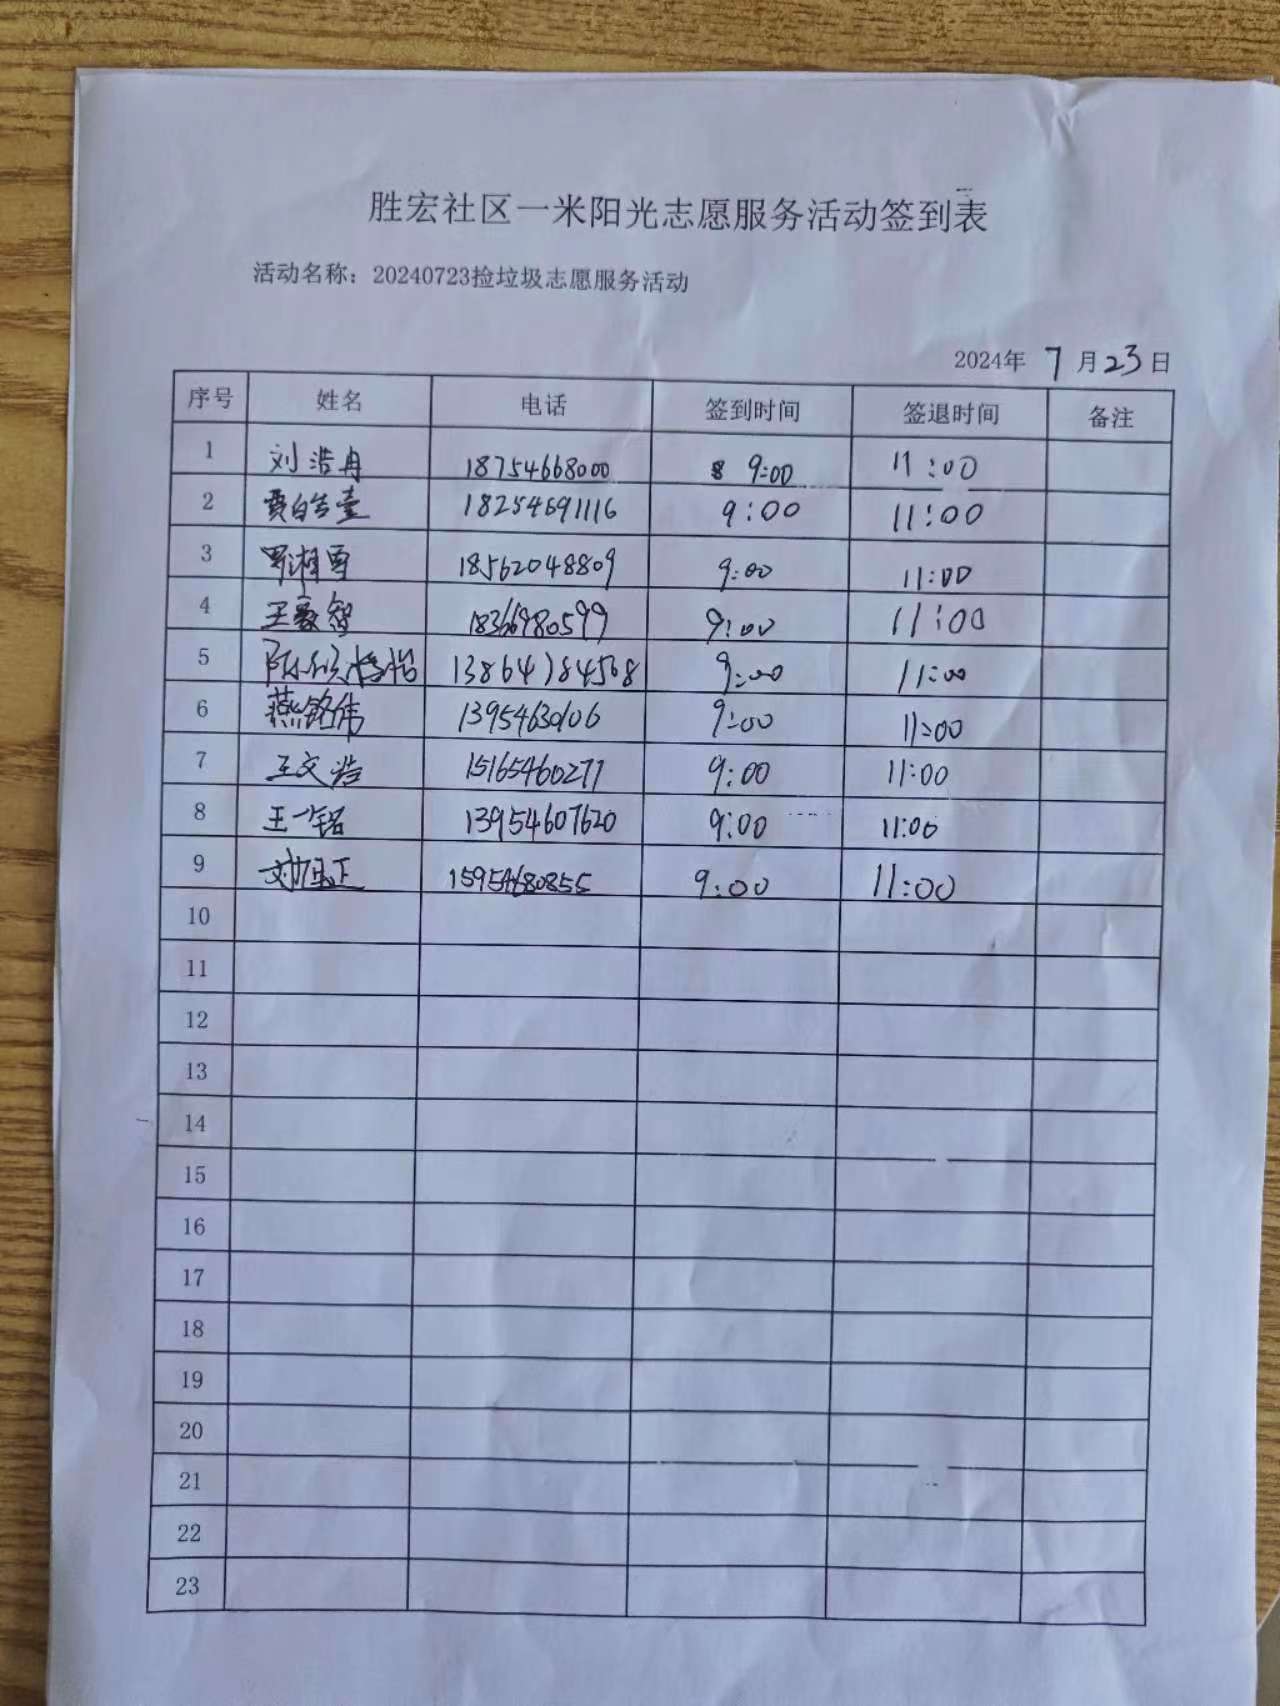 胜宏社区一米阳光志愿服务活动签到表
活动名称：20240723捡垃圾志愿服务活动
2024年 7 月 23 日
序号 姓名 电话 签到时间 签退时间 备注
1 刘浩冉 18754668000 9:00 11:00
2 贾皓壹 18254691116 9:00 11:00
3 罗湘雪 18562048809 9:00 11:00
4 王豪智 18366980599 9:00 11:00
5 13864784568 9:00 11:00
6 燕铭伟 13954630106 9:00 11:00
7 王文浩 15165460277 9:00 11:00
8 王一铭 13954607620 9:00 11:00
9 15954680855 9:00 11:00
10
11
12
13
14
15
16
17
18
19
20
21
22
23